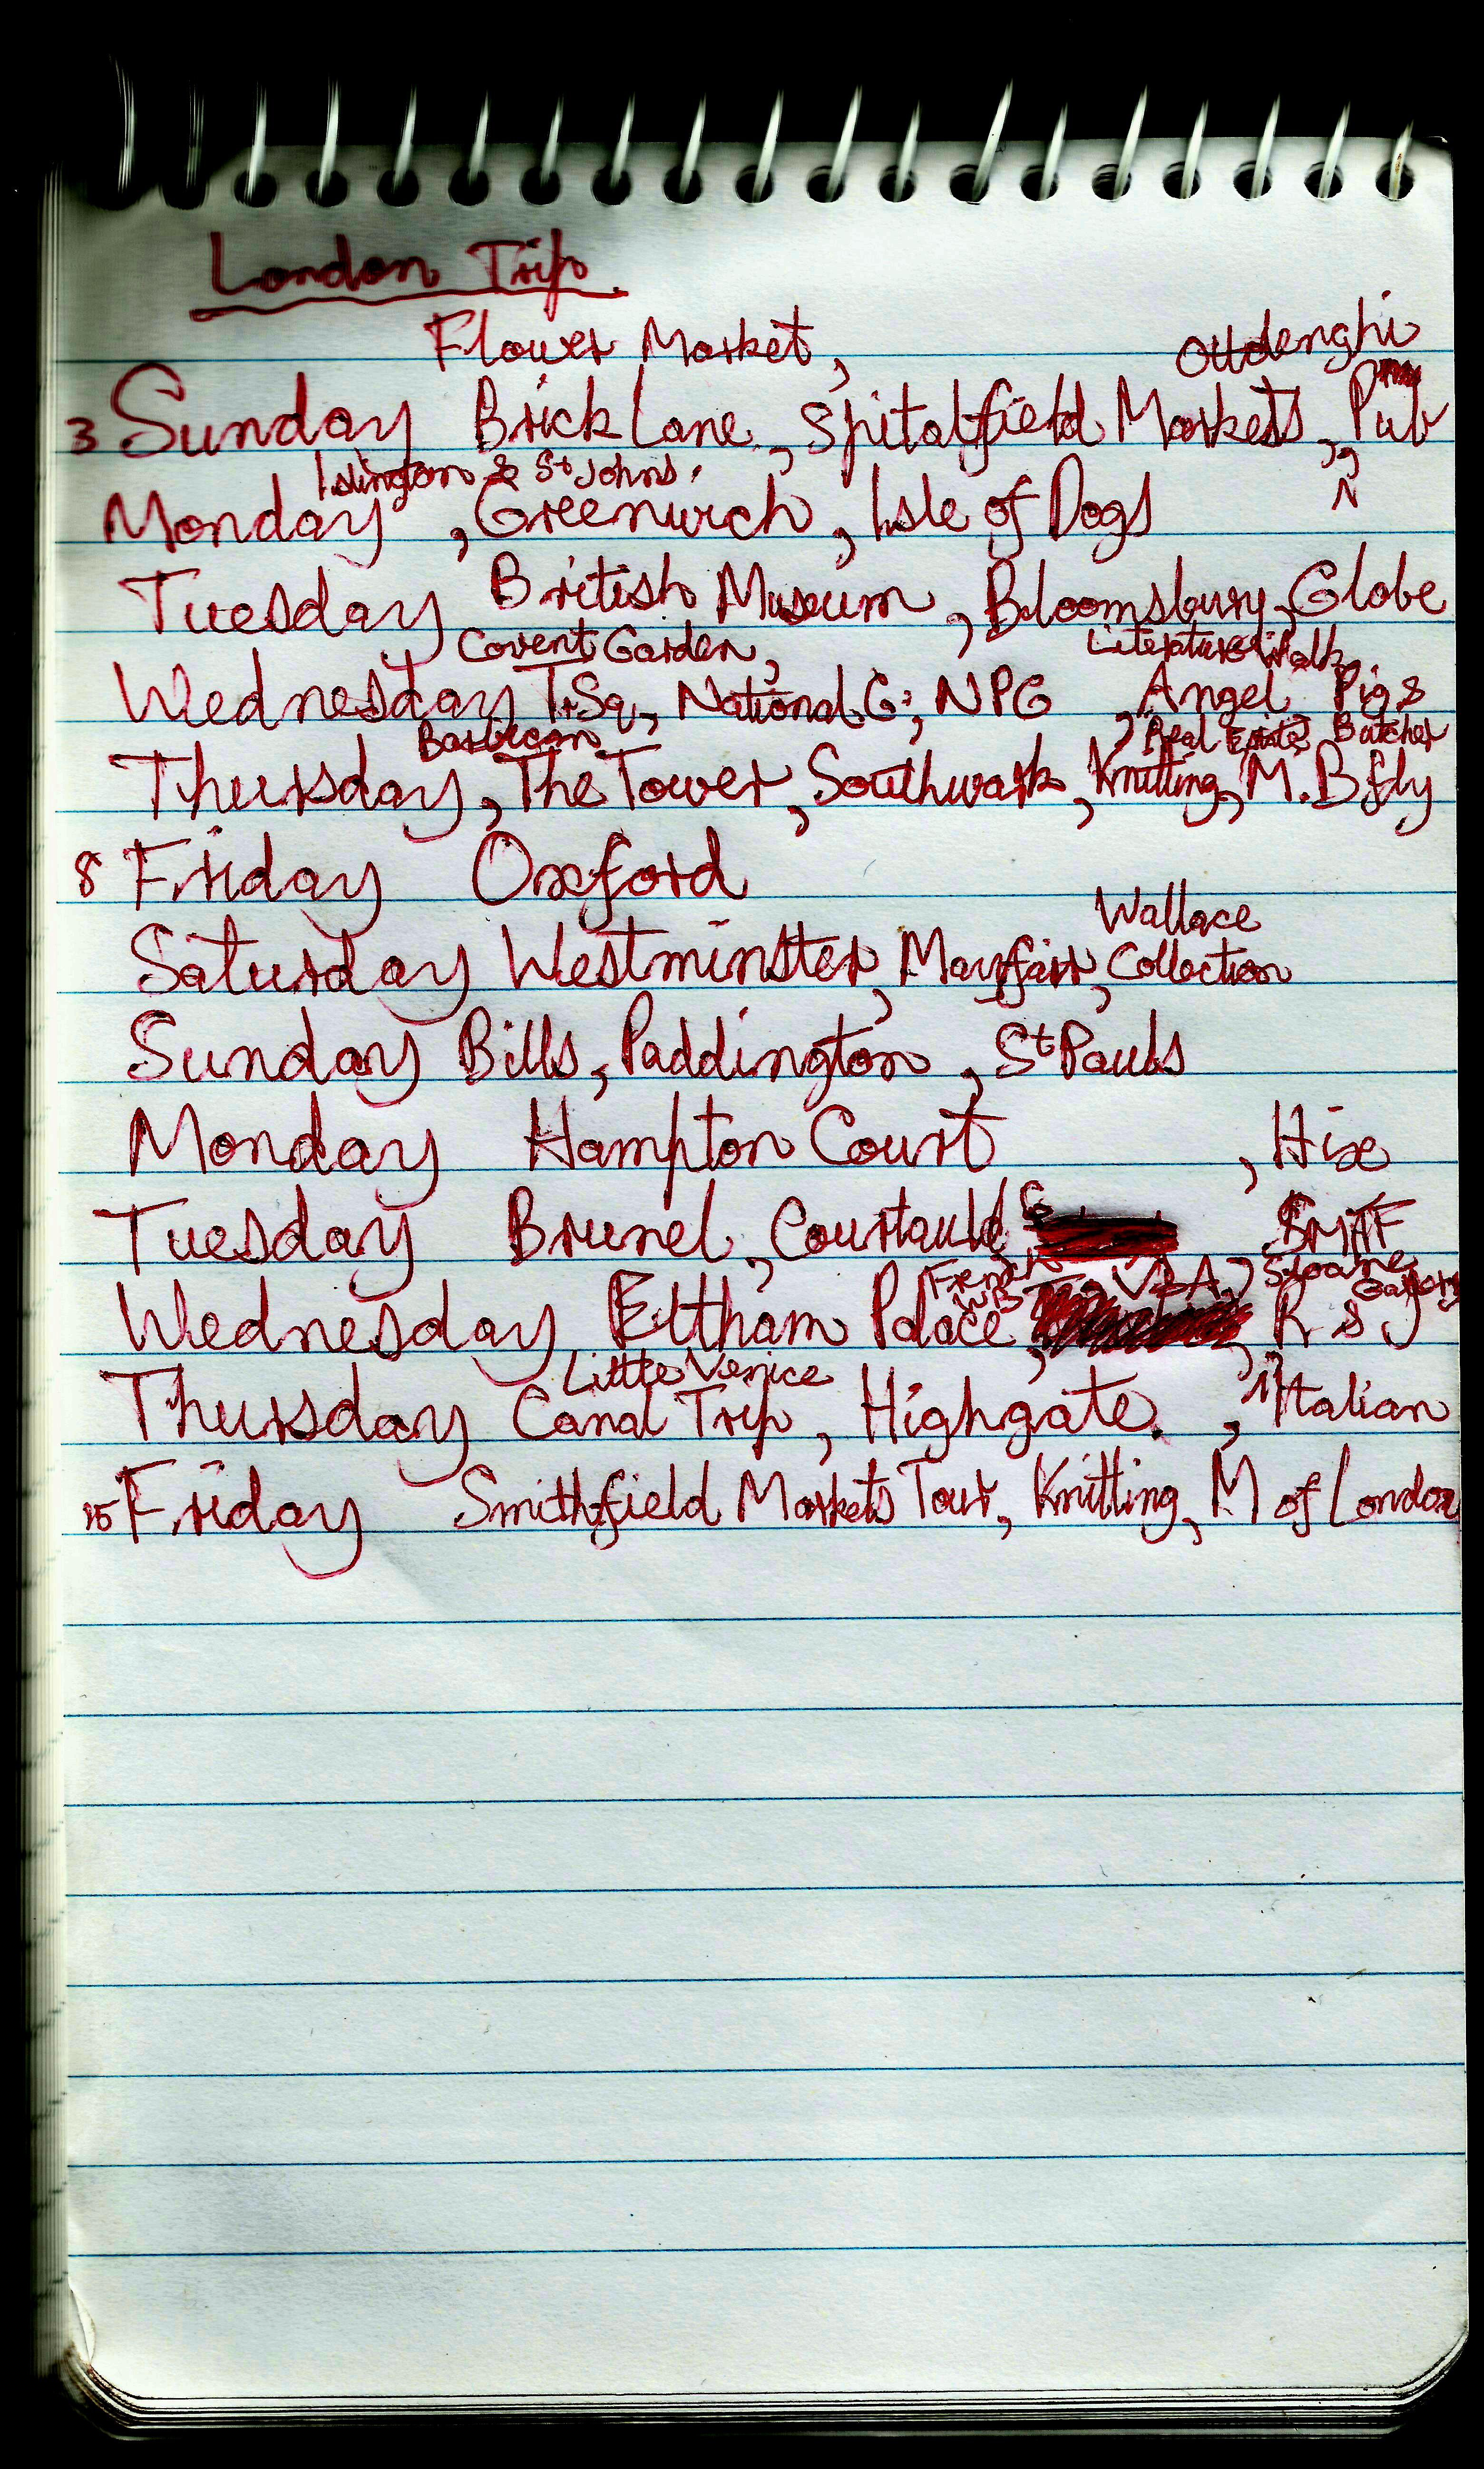 London Trip
Flower Market, Ottdenghi
3 Sunday Brick Lane, Spitalfield Markets, Pub
Islington & St Johns,
Monday , Greenwich, Isle of Dogs
Tuesday British Museum, Bloomsbury, Globe
Covent Garden, Literature Walk
Wednesday T.Sq, National G, NPG , Angel Pigs
Barbican Real Estate Butcher
Thursday, The Tower, Southwark, Knitting, M. Bfly
8 Friday Oxford
Wallace
Saturday Westminster, Mayfair, Collection
Sunday Bills, Paddington, St Pauls
Monday Hampton Court , Hix
Tuesday Brunel, Courtauld G
French V&A, Sloane
WB Gallery
Wednesday Eltham Palace, , R S J
Little Venice
Thursday Canal Trip, Highgate. , Italian
15 Friday Smithfield Markets Tour, Knitting, M of London